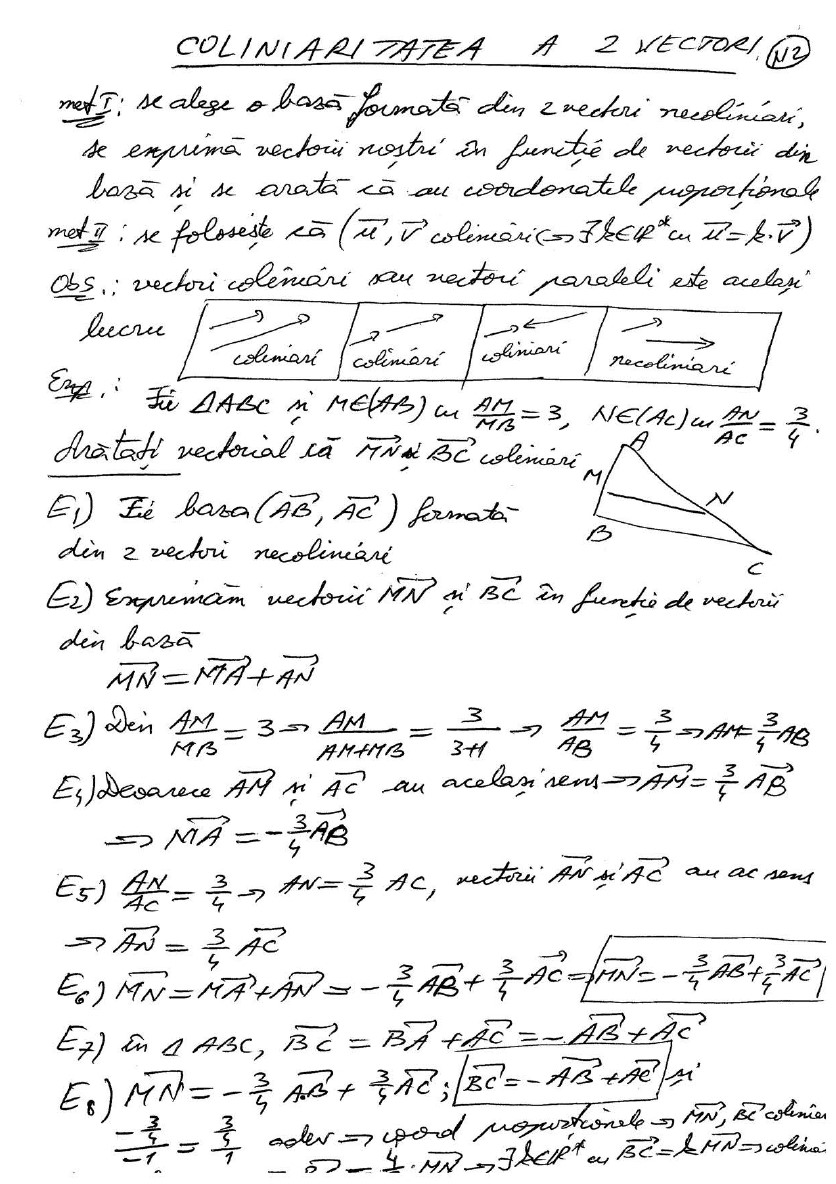 COLINIARITATEA A 2 VECTORI. N2
met I: se alege o bază formată din 2 vectori necoliniari,
se exprimă vectorii noștri în funcție de vectorii din
bază și se arată că au coordonatele proporționale
met II: se folosește că (u⃗, v⃗ coliniari ⇔ ∃k∈ℝ* cu u⃗ = k·v⃗)
Obs.: vectori coliniari sau vectori paraleli este același
lucru
coliniari coliniari coliniari necoliniari
Exp.: Fie ΔABC și M∈(AB) cu AM/MB = 3, N∈(AC) cu AN/AC = 3/4.
Arătați vectorial că MN⃗ și BC⃗ coliniari
A
M
N
B
C
E1) Fie baza (AB⃗, AC⃗) formată
din 2 vectori necoliniari
E2) Exprimăm vectorii MN⃗ și BC⃗ în funcție de vectorii
din bază
MN⃗ = MA⃗ + AN⃗
E3) Din AM/MB = 3 ⇒ AM/(AM+MB) = 3/(3+1) ⇒ AM/AB = 3/4 ⇒ AM = 3/4 AB
E4) Deoarece AM⃗ și AC⃗ au același sens ⇒ AM⃗ = 3/4 AB⃗
⇒ MA⃗ = -3/4 AB⃗
E5) AN/AC = 3/4 ⇒ AN = 3/4 AC, vectorii AN⃗ și AC⃗ au ac sens
⇒ AN⃗ = 3/4 AC⃗
E6) MN⃗ = MA⃗ + AN⃗ = -3/4 AB⃗ + 3/4 AC⃗ ⇒ MN⃗ = -3/4 AB⃗ + 3/4 AC⃗
E7) în Δ ABC, BC⃗ = BA⃗ + AC⃗ = -AB⃗ + AC⃗
E8) MN⃗ = -3/4 AB⃗ + 3/4 AC⃗; BC⃗ = -AB⃗ + AC⃗ și
(-3/4)/(-1) = (3/4)/1 adev ⇒ coord proporționale ⇒ MN⃗, BC⃗ coliniar
4 · MN⃗ ⇒ ∃k∈ℝ* cu BC⃗ = k MN⃗ ⇒ colinia